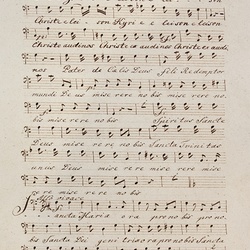 Christe elei son Kyri e eleison eleison
Christe audi nos Christe ex audi, ex audi,
nos Pater de Cælis Deus fili Redemptor
mundi Deus mise rere no bis mise rere no,
bis mise rere no bis Spiritus Sancte
Deus mise rere no bis Sancta Trinitas
unus Deus mise rere no bis mise
re re mise re re no bis
Sancta Maria o ra pro no bis pro no,
bis Sancta Dei geni trix ora pro no bis